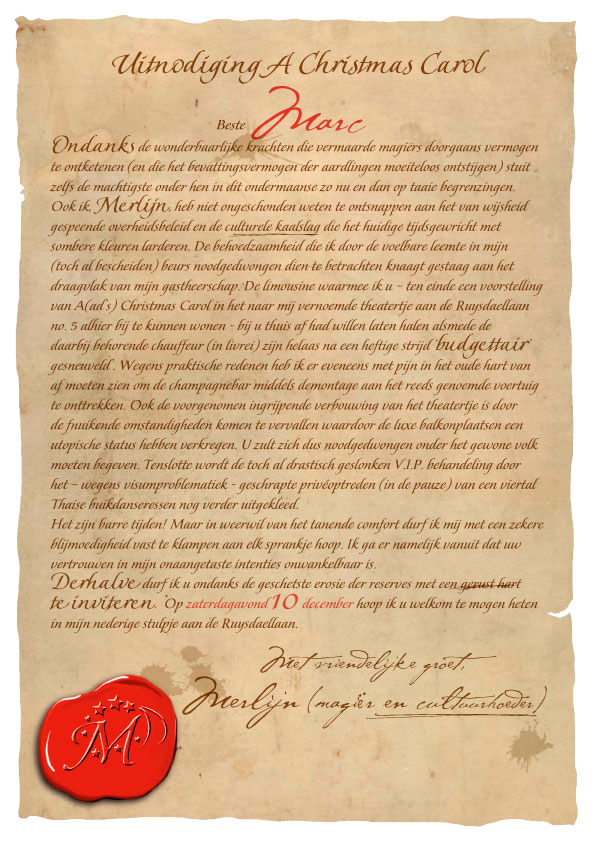 Uitnodiging A Christmas Carol
Beste Marc
Ondanks de wonderbaarlijke krachten die vermaarde magiërs doorgaans vermogen
te ontketenen (en die het bevattingsvermogen der aardlingen moeiteloos ontstijgen) stuit
zelfs de machtigste onder hen in dit ondermaanse zo nu en dan op taaie begrenzingen.
Ook ik, Merlijn, heb niet ongeschonden weten te ontsnappen aan het van wijsheid
gespeende overheidsbeleid en de culturele kaalslag die het huidige tijdsgewricht met
sombere kleuren larderen. De behoedzaamheid die ik door de voelbare leemte in mijn
(toch al bescheiden) beurs noodgedwongen dien te betrachten knaagt gestaag aan het
draagvlak van mijn gastheerschap. De limousine waarmee ik u – ten einde een voorstelling
van A(ad's) Christmas Carol in het naar mij vernoemde theatertje aan de Ruysdaellaan
no. 5 alhier bij te kunnen wonen - bij u thuis af had willen laten halen alsmede de
daarbij behorende chauffeur (in livrei) zijn helaas na een heftige strijd 'budgettair
gesneuveld'. Wegens praktische redenen heb ik er eveneens met pijn in het oude hart van
af moeten zien om de champagnebar middels demontage aan het reeds genoemde voertuig
te onttrekken. Ook de voorgenomen ingrijpende verbouwing van het theatertje is door
de fnuikende omstandigheden komen te vervallen waardoor de luxe balkonplaatsen een
utopische status hebben verkregen. U zult zich dus noodgedwongen onder het gewone volk
moeten begeven. Tenslotte wordt de toch al drastisch geslonken V.I.P. behandeling door
het – wegens visumproblematiek - geschrapte privéoptreden (in de pauze) van een viertal
Thaise buikdanseressen nog verder uitgekleed.
Het zijn barre tijden! Maar in weerwil van het tanende comfort durf ik mij met een zekere
blijmoedigheid vast te klampen aan elk sprankje hoop. Ik ga er namelijk vanuit dat uw
vertrouwen in mijn onaangetaste intenties onwankelbaar is.
Derhalve durf ik u ondanks de geschetste erosie der reserves met een gerust hart
te inviteren. Op zaterdagavond 10 december hoop ik u welkom te mogen heten
in mijn nederige stulpje aan de Ruysdaellaan.
Met vriendelijke groet,
Merlijn (magiër en cultuurhoeder)
M